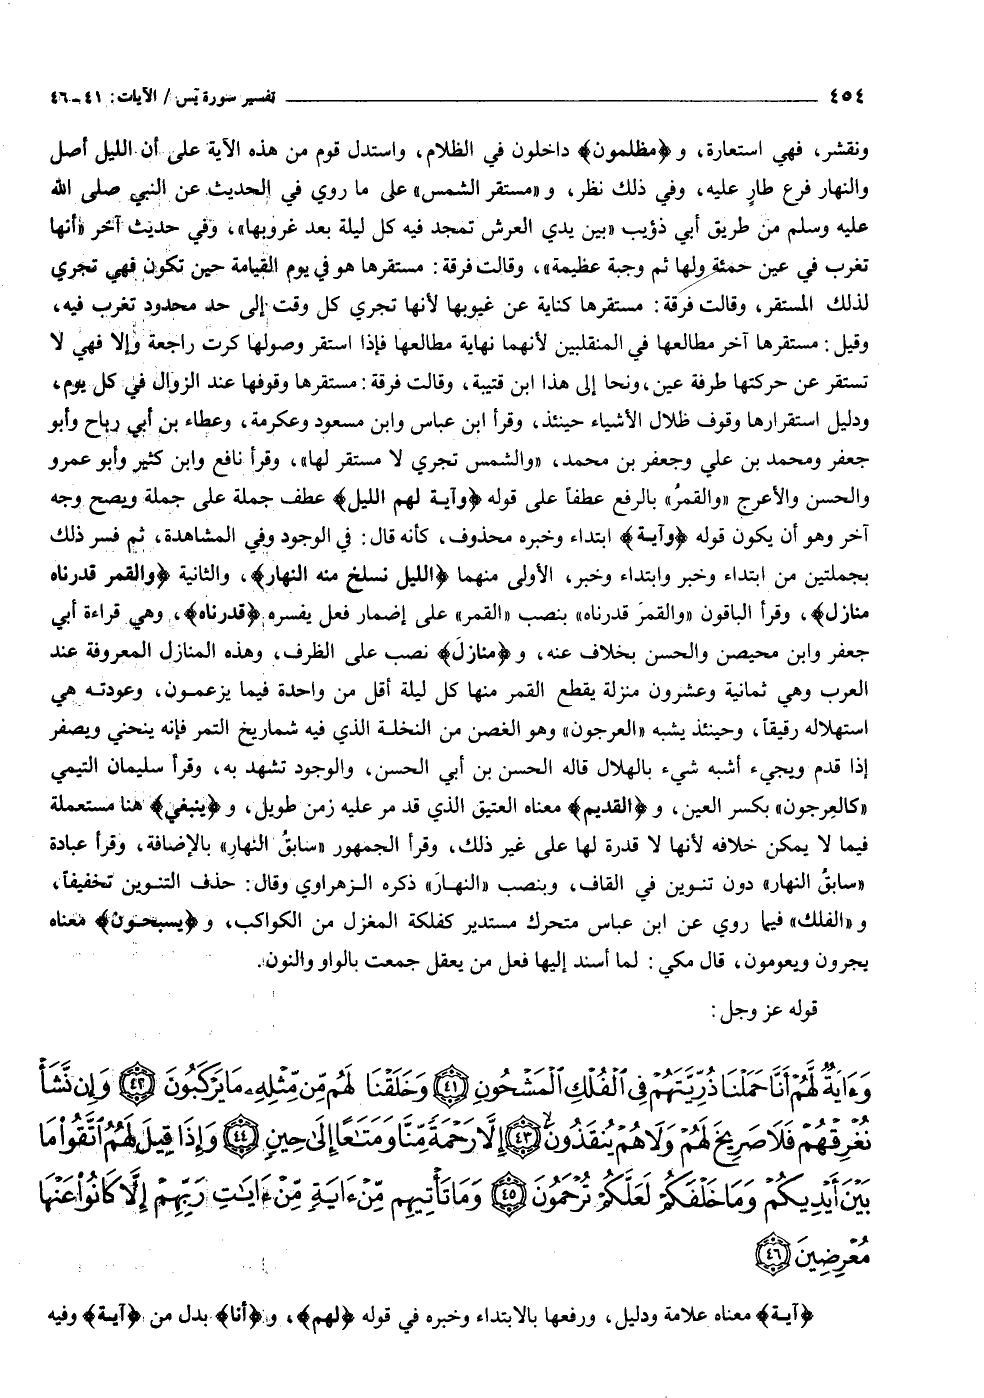 ٤٥٤ ـــ تفسير سورة يٓس / الآيات: ٤١ - ٤٦
ونقشر، فهي استعارة، و ﴿مظلمون﴾ داخلون في الظلام، واستدل قوم من هذه الآية على أن الليل أصل
والنهار فرع طارٍ عليه، وفي ذلك نظر، و «مستقر الشمس» على ما روي في الحديث عن النبي صلى الله
عليه وسلم من طريق أبي ذؤيب «بين يدي العرش تمجد فيه كل ليلة بعد غروبها»، وفي حديث آخر «أنها
تغرب في عين حمئة ولها ثم وجبة عظيمة»، وقالت فرقة: مستقرها هو في يوم القيامة حين تكون فهي تجري
لذلك المستقر، وقالت فرقة: مستقرها كناية عن غيوبها لأنها تجري كل وقت إلى حد محدود تغرب فيه،
وقيل: مستقرها آخر مطالعها في المنقلبين لأنهما نهاية مطالعها فإذا استقر وصولها كرت راجعة وإلا فهي لا
تستقر عن حركتها طرفة عين، ونحا إلى هذا ابن قتيبة، وقالت فرقة: مستقرها وقوفها عند الزوال في كل يوم،
ودليل استقرارها وقوف ظلال الأشياء حينئذ، وقرأ ابن عباس وابن مسعود وعكرمة، وعطاء بن أبي رباح وأبو
جعفر ومحمد بن علي وجعفر بن محمد، «والشمس تجري لا مستقر لها»، وقرأ نافع وابن كثير وأبو عمرو
والحسن والأعرج «والقمرُ» بالرفع عطفاً على قوله ﴿وآية لهم الليل﴾ عطف جملة على جملة ويصح وجه
آخر وهو أن يكون قوله ﴿وآية﴾ ابتداء وخبره محذوف، كأنه قال: في الوجود وفي المشاهدة، ثم فسر ذلك
بجملتين من ابتداء وخبر وابتداء وخبر، الأولى منهما ﴿الليل نسلخ منه النهار﴾، والثانية ﴿والقمر قدرناه
منازل﴾، وقرأ الباقون «والقمرَ قدرناه» بنصب «القمر» على إضمار فعل يفسره ﴿قدرناه﴾، وهي قراءة أبي
جعفر وابن محيصن والحسن بخلاف عنه، و ﴿منازلَ﴾ نصب على الظرف، وهذه المنازل المعروفة عند
العرب وهي ثمانية وعشرون منزلة يقطع القمر منها كل ليلة أقل من واحدة فيما يزعمون، وعودته هي
استهلاله رقيقاً، وحينئذ يشبه «العرجون» وهو الغصن من النخلة الذي فيه شماريخ التمر فإنه ينحني ويصفر
إذا قدم ويجيء أشبه شيء بالهلال قاله الحسن بن أبي الحسن، والوجود تشهد به، وقرأ سليمان التيمي
«كالعِرجون» بكسر العين، و ﴿القديم﴾ معناه العتيق الذي قد مر عليه زمن طويل، و ﴿ينبغي﴾ هنا مستعملة
فيما لا يمكن خلافه لأنها لا قدرة لها على غير ذلك، وقرأ الجمهور «سابقُ النهارِ» بالإضافة، وقرأ عبادة
«سابقُ النهار» دون تنوين في القاف، وبنصب «النهارَ» ذكره الزهراوي وقال: حذف التنوين تخفيفاً،
و «الفلك» فيما روي عن ابن عباس متحرك مستدير كفلكة المغزل من الكواكب، و ﴿يسبحون﴾ معناه
يجرون ويعومون، قال مكي: لما أسند إليها فعل من يعقل جمعت بالواو والنون.
قوله عز وجل:
وَءَايَةٌ لَّهُمْ أَنَّا حَمَلْنَا ذُرِّيَّتَهُمْ فِي ٱلْفُلْكِ ٱلْمَشْحُونِ ﴿٤١﴾ وَخَلَقْنَا لَهُم مِّن مِّثْلِهِۦ مَا يَرْكَبُونَ ﴿٤٢﴾ وَإِن نَّشَأْ
نُغْرِقْهُمْ فَلَا صَرِيخَ لَهُمْ وَلَا هُمْ يُنقَذُونَ ﴿٤٣﴾ إِلَّا رَحْمَةً مِّنَّا وَمَتَٰعًا إِلَىٰ حِينٍ ﴿٤٤﴾ وَإِذَا قِيلَ لَهُمُ ٱتَّقُوا۟ مَا
بَيْنَ أَيْدِيكُمْ وَمَا خَلْفَكُمْ لَعَلَّكُمْ تُرْحَمُونَ ﴿٤٥﴾ وَمَا تَأْتِيهِم مِّنْ ءَايَةٍ مِّنْ ءَايَٰتِ رَبِّهِمْ إِلَّا كَانُوا۟ عَنْهَا
مُعْرِضِينَ ﴿٤٦﴾
﴿آية﴾ معناه علامة ودليل، ورفعها بالابتداء وخبره في قوله ﴿لهم﴾، و ﴿أنا﴾ بدل من ﴿آية﴾ وفيه